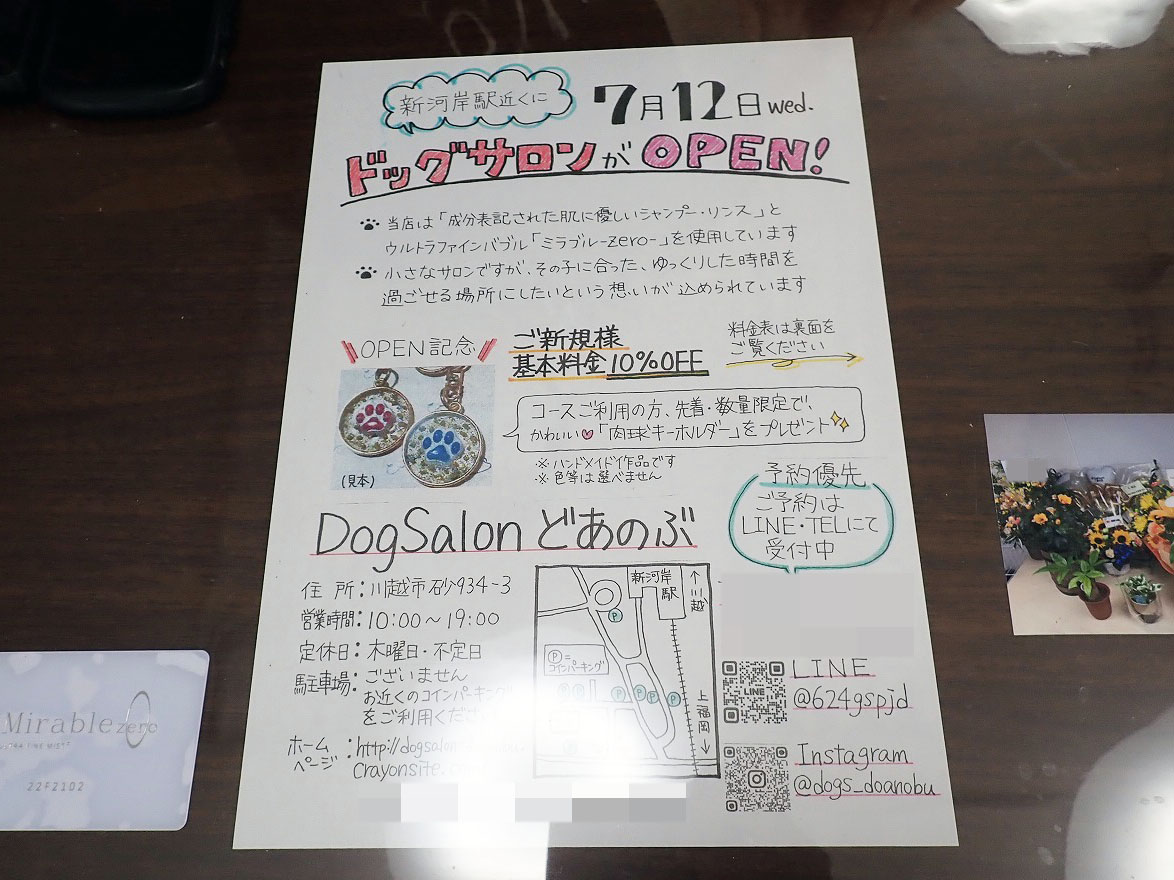 新河岸駅近くに
7月12日wed.
ドッグサロンがOPEN!
当店は「成分表記された肌に優しいシャンプー・リンス」と
ウルトラファインバブル「ミラブル-zero-」を使用しています
小さなサロンですが、その子に合った、ゆっくりした時間を
過ごせる場所にしたいという想いが込められています
OPEN記念
ご新規様
基本料金10%OFF
料金表は裏面を
ご覧ください
コースご利用の方、先着・数量限定で、
かわいい「肉球キーホルダー」をプレゼント
※ハンドメイド作品です
※色等は選べません
(見本)
予約優先
ご予約は
LINE・TELにて
受付中
DogSalon どあのぶ
住所:川越市砂934-3
営業時間:10:00〜19:00
定休日:木曜日・不定日
駐車場:ございません
お近くのコインパーキング
をご利用くださ
ホームページ:http://dogsalon-doanobu.
crayonsite.com
新河岸駅
↑川越
P=コインパーキング
P
P
P
P
P
上福岡↓
LINE
LINE
@624gspjd
Instagram
@dogs_doanobu
Mirable zero
ULTRA FINE MIST
22F2102